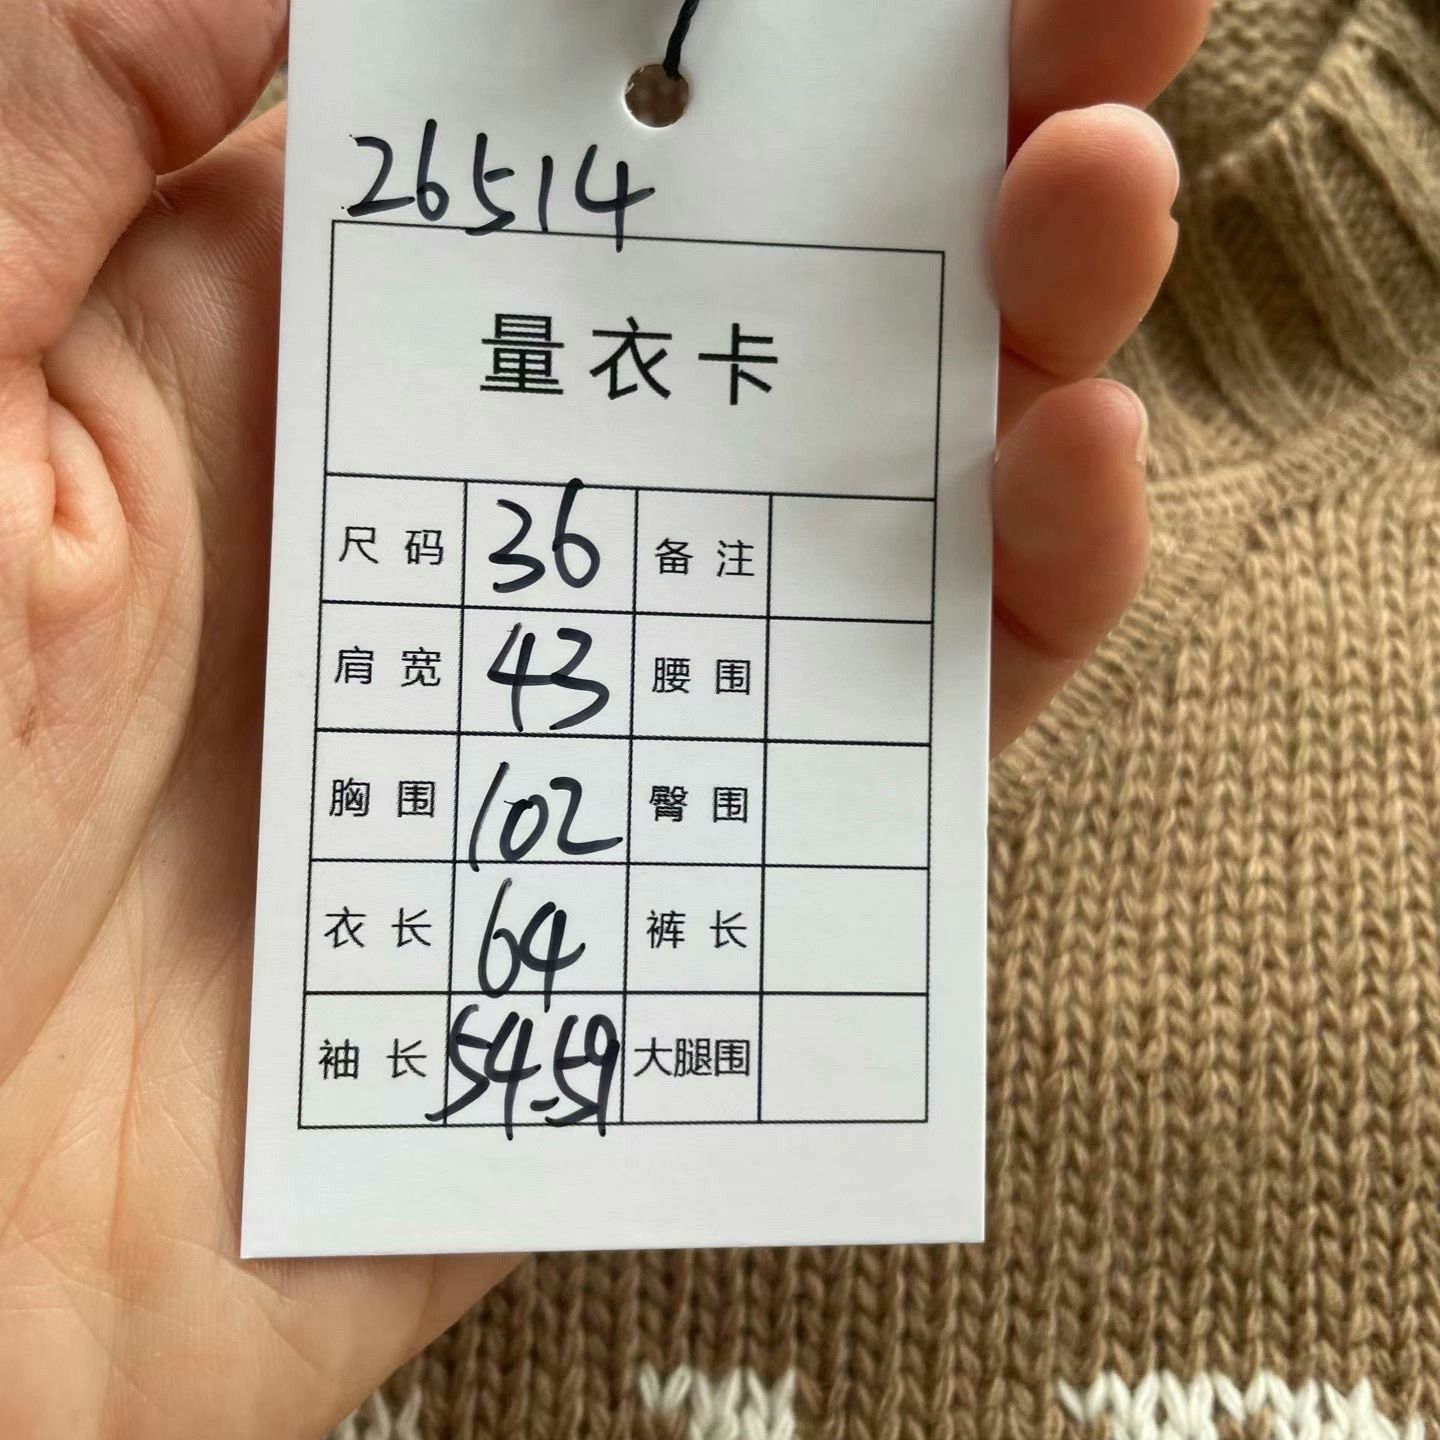 26514
量衣卡
尺码 36 备注
肩宽 43 腰围
胸围 102 臀围
衣长 64 裤长
袖长 54-59 大腿围